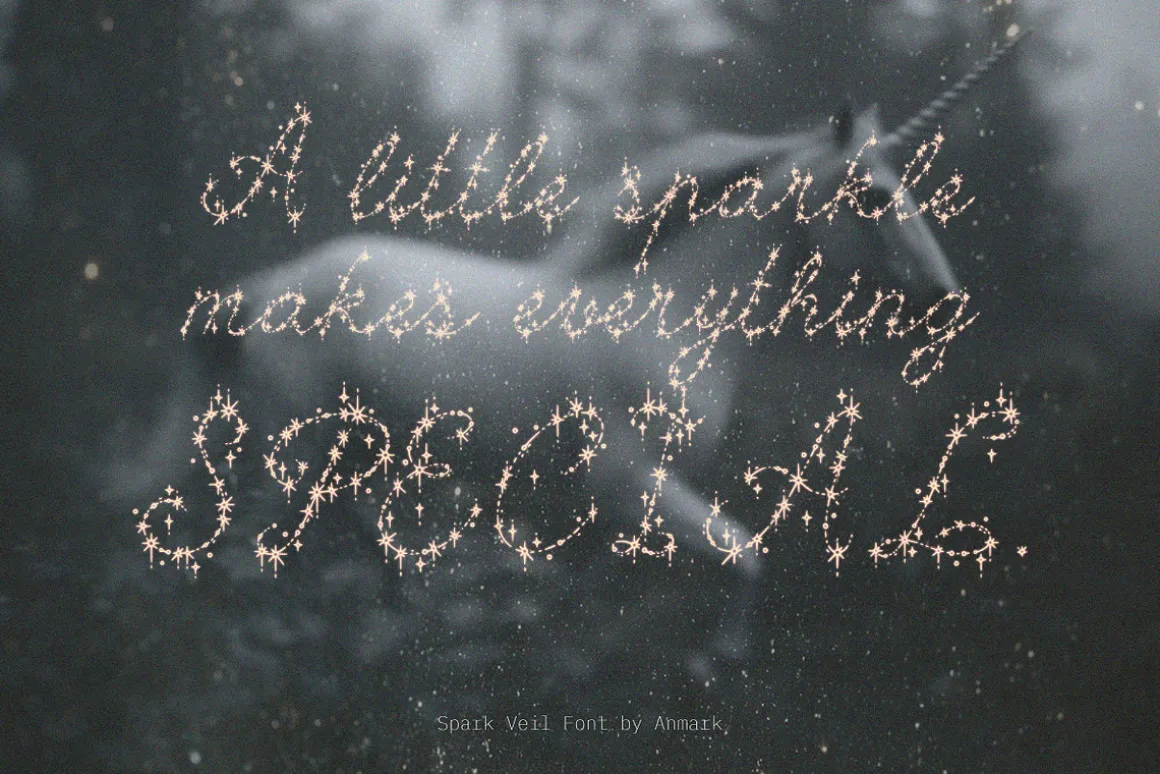 A little sparkle
makes everything
SPECIAL.
Spark Veil Font by Anmark